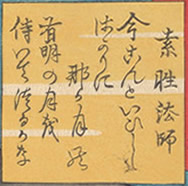 素性法師
今こんといひし
はかりに
那か月能
有明の月越
待いてつるか奈